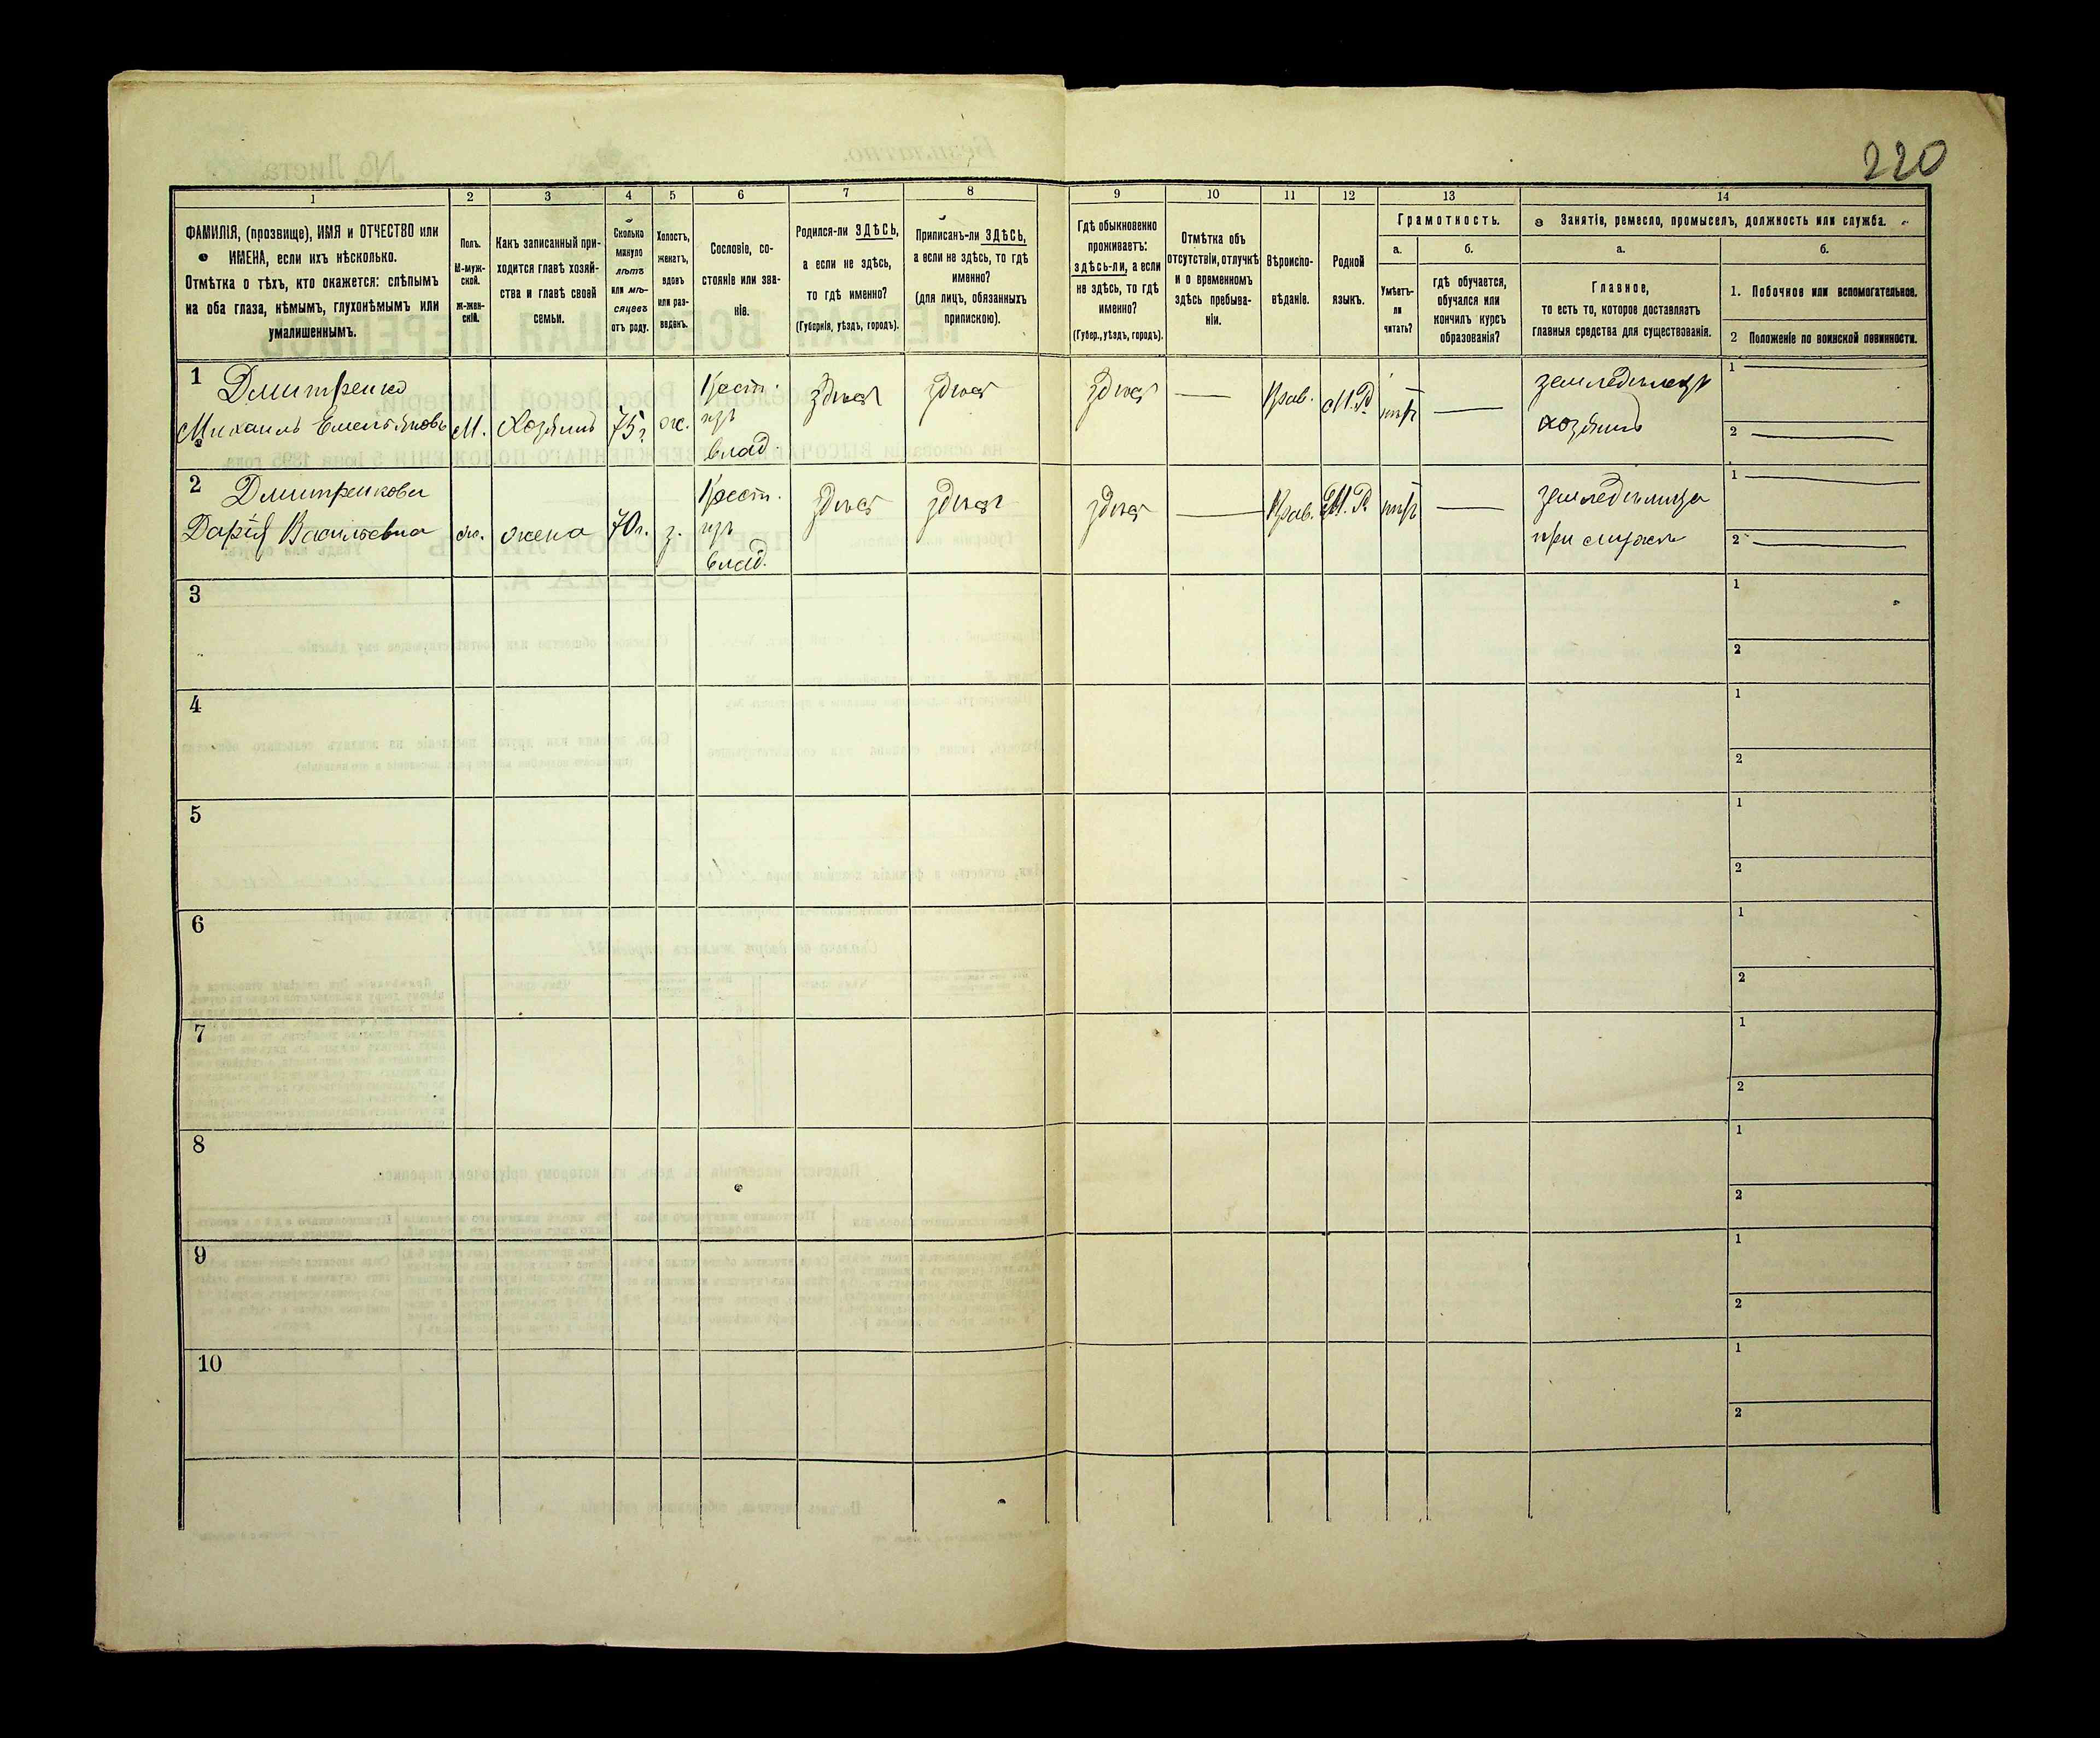 220
1
2
3
4
5
6
7
8
9
10
11
12
13
14
ФАМИЛІЯ, (прозвище), ИМЯ и ОТЧЕСТВО или
ИМЕНА, если ихъ нѣсколько.
Отмѣтка о тѣхъ, кто окажется: слѣпымъ
на оба глаза, нѣмымъ, глухонѣмымъ или
умалишеннымъ.
Полъ.
М-муж-
ской.
Ж-жен-
скій.
Какъ записанный при-
ходится главѣ хозяй-
ства и главѣ своей
семьи.
Сколько
минуло
лѣтъ
или мѣ-
сяцевъ
отъ роду.
Холостъ,
женатъ,
вдовъ
или раз-
веденъ.
Сословіе, со-
стояніе или зва-
ніе.
Родился-ли ЗДѢСЬ,
а если не здѣсь,
то гдѣ именно?
(Губернія, уѣздъ, городъ).
Приписанъ-ли ЗДѢСЬ,
а если не здѣсь, то гдѣ
именно?
(для лицъ, обязанныхъ
припискою).
Гдѣ обыкновенно
проживаетъ:
здѣсь-ли, а если
не здѣсь, то гдѣ
именно?
(Губер., уѣздъ, городъ).
Отмѣтка объ
отсутствіи, отлучкѣ
и о временномъ
здѣсь пребыва-
ніи.
Вѣроиспо-
вѣданіе.
Родной
языкъ.
Грамотность.
а.
б.
Умѣетъ-
ли
читать?
гдѣ обучается,
обучался или
кончилъ курсъ
образованія?
Занятіе, ремесло, промыселъ, должность или служба.
а.
б.
Главное,
то есть то, которое доставляетъ
главныя средства для существованія.
1. Побочное или вспомогательное.
2 Положеніе по воинской повинности.
1
Дмитренко
Михаилъ Емельяновъ
М.
Хозяинъ
75 г
ж.
Крест.
изъ
влад.
здѣсь
здѣсь
здѣсь
Прав.
М.Р.
нѣтъ
земледѣлецъ
хозяинъ
1
2
2
Дмитренкова
Дарія Васильевна
ж.
жена
70 л.
з.
Крест.
изъ
влад.
здѣсь
здѣсь
здѣсь
Прав.
М.Р.
нѣтъ
земледѣлица
при мужѣ
1
2
3
1
2
4
1
2
5
1
2
6
1
2
7
1
2
8
1
2
9
1
2
10
1
2